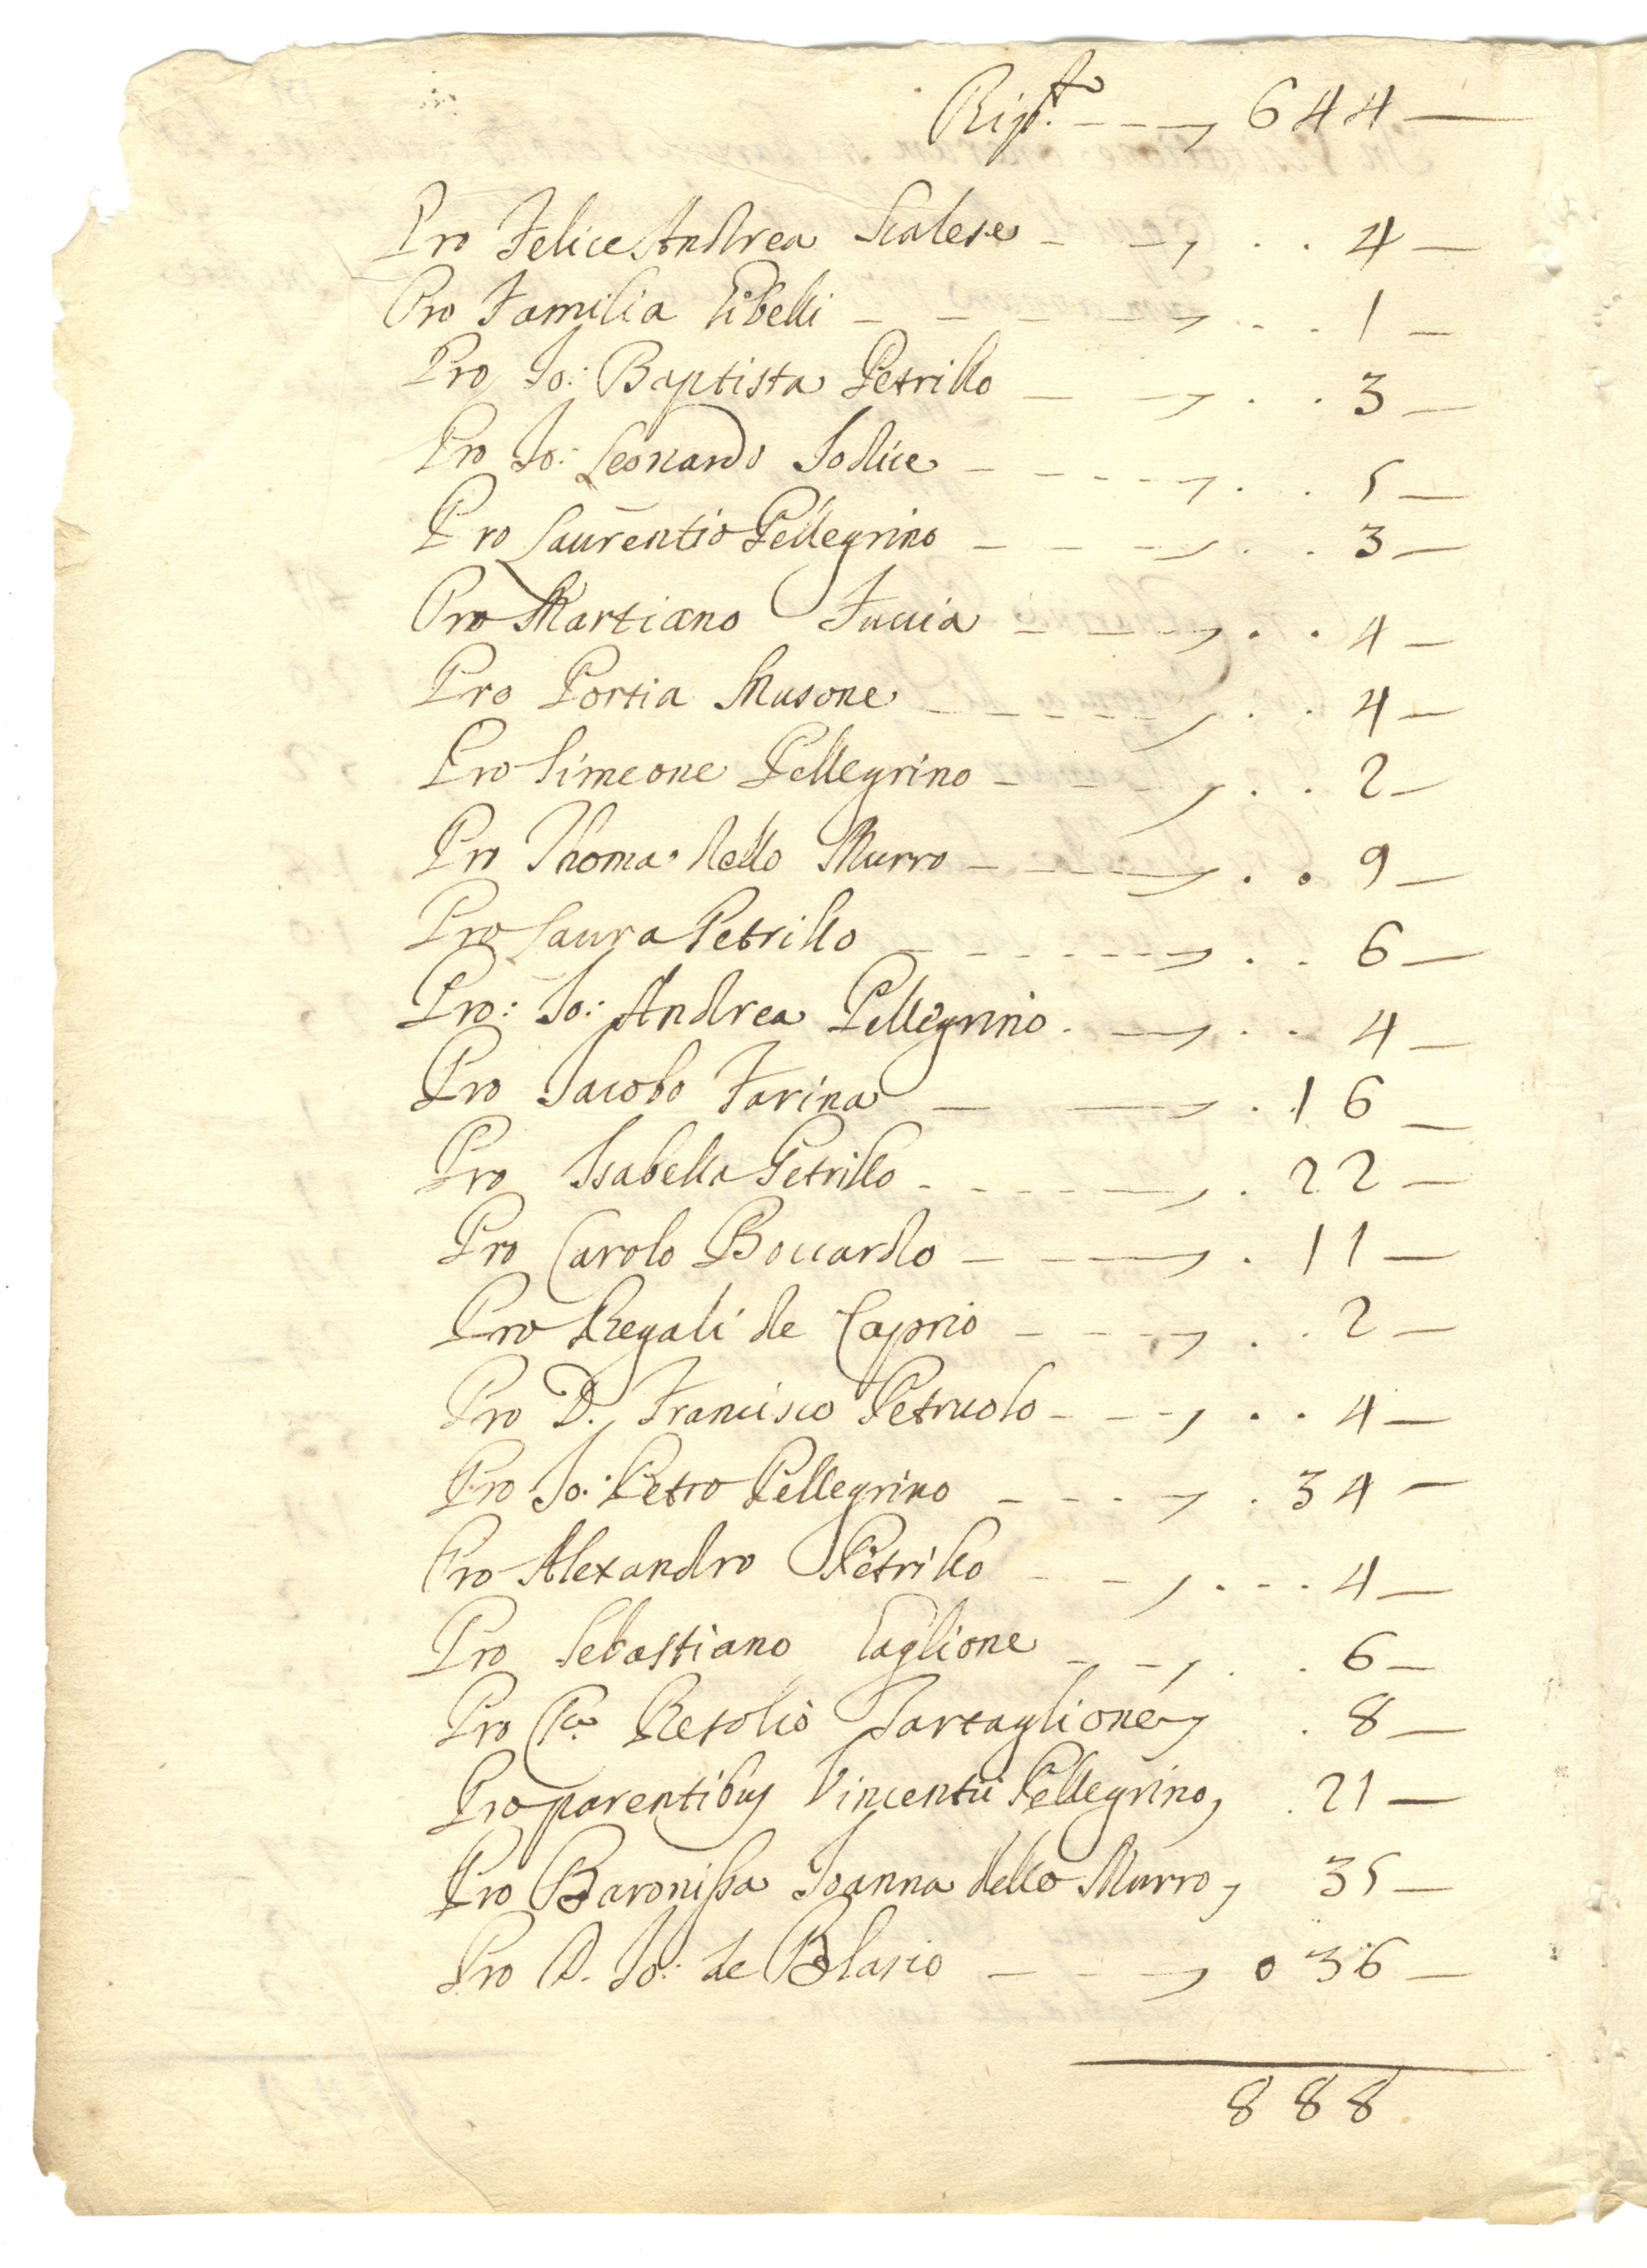 Rip.to 644
Pro Felice Andrea Scalese 4
Pro Familia Tibelli 1
Pro Jo: Baptista Petrillo 3
Pro Jo: Leonardo Jodice 5
Pro Laurentio Pellegrino 3
Pro Martiano Fuccia 4
Pro Portia Musone 4
Pro Simeone Pellegrino 2
Pro Thoma dello Murro 9
Pro Laura Petrillo 6
Pro: Jo: Andrea Pellegrino 4
Pro Jacobo Farina 16
Pro Isabella Petrillo 22
Pro Carolo Boccardo 11
Pro Regali de Caprio 2
Pro D. Francisco Petruolo 4
Pro Jo: Petro Pellegrino 34
Pro Alexandro Petrillo 4
Pro Sebastiano Taglione 6
Pro Resolio Tartaglione 8
Pro parentibus Vincentii Pellegrino 21
Pro Baronissa Joanna dello Murro 35
Pro D. Jo: de Blasio 36
888